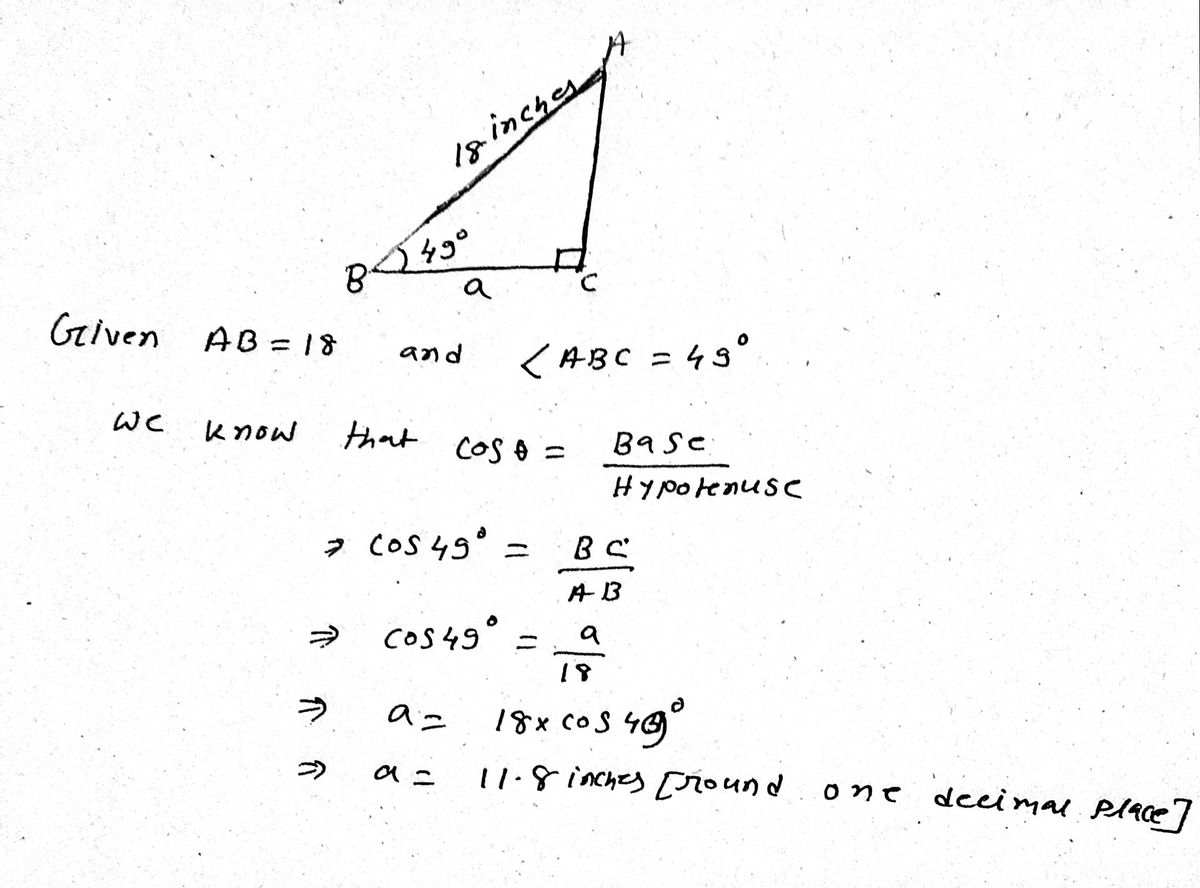 A
18 inches
49°
B a C
Given AB = 18 and ∠ABC = 49°
we know that cos θ = Base / Hypotenuse
⇒ cos 49° = BC / AB
⇒ cos 49° = a / 18
⇒ a = 18 x cos 49°
⇒ a = 11.8 inches [round one decimal place]